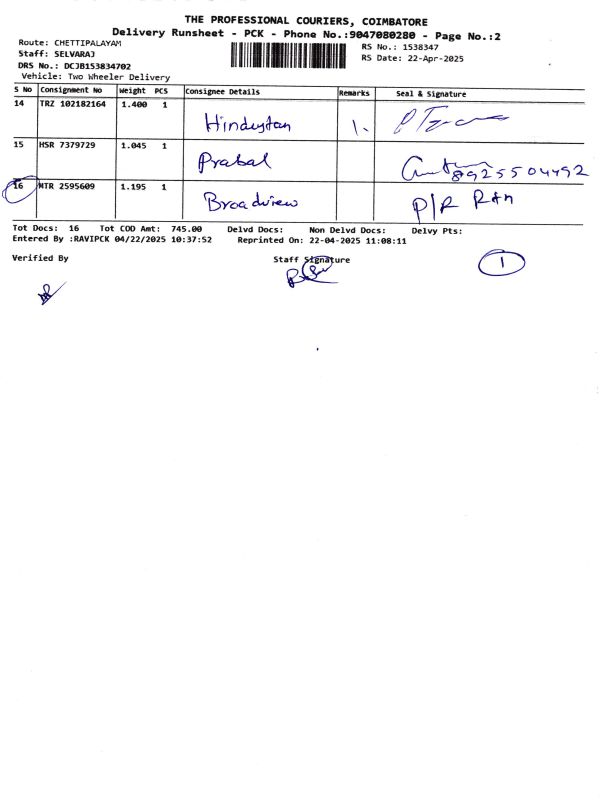 THE PROFESSIONAL COURIERS, COIMBATORE
Delivery Runsheet - PCK - Phone No.:9047080280 - Page No.:2
Route: CHETTIPALAYAM
Staff: SELVARAJ
DRS No.: DCJB153834702
Vehicle: Two Wheeler Delivery
RS No.: 1538347
RS Date: 22-Apr-2025
S No Consignment No Weight PCS Consignee Details Remarks Seal & Signature
14 TRZ 102182164 1.400 1 Hindustan 1.
15 HSR 7379729 1.045 1 Prabal 8925504492
16 MTR 2595609 1.195 1 Broadview P/R R+n
Tot Docs: 16 Tot COD Amt: 745.00 Delvd Docs: Non Delvd Docs: Delvy Pts:
Entered By :RAVIPCK 04/22/2025 10:37:52 Reprinted On: 22-04-2025 11:08:11
Verified By Staff Signature 1